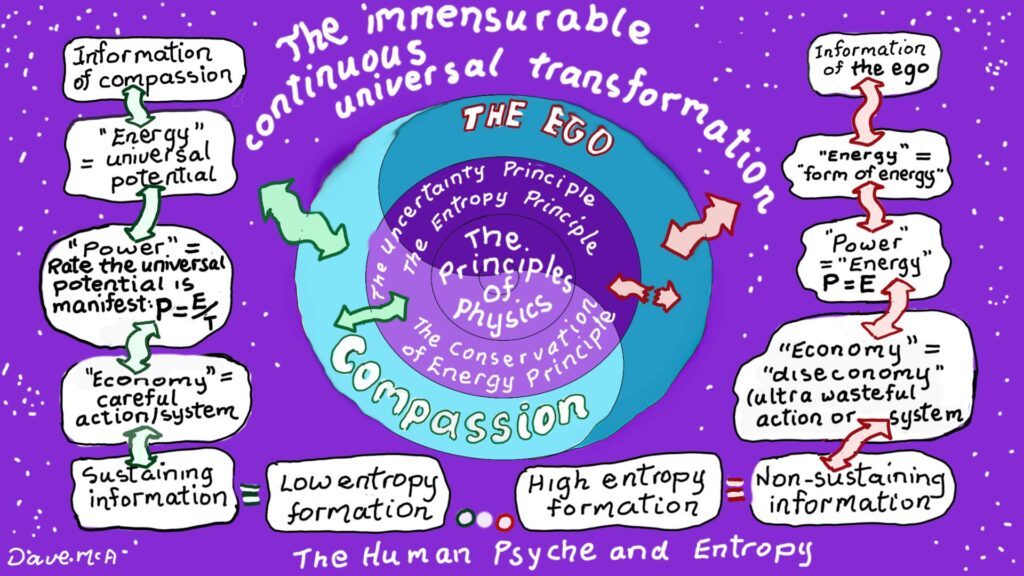 The immensurable
continuous
universal transformation
Information
of compassion
"Energy"
= universal
potential
"Power" =
Rate the universal
potential is
manifest: P=E/T
"Economy" =
careful
action/system
Sustaining
information
=
Low entropy
formation
THE EGO
The Uncertainty Principle
The Entropy Principle
The
Principles
of
Physics
The Conservation
of Energy Principle
Compassion
Information
of the ego
"Energy" =
"form of energy"
"Power"
= "Energy"
P=E
"Economy" =
"diseconomy"
(ultra wasteful
action or system
Non-sustaining
information
=
High entropy
formation
Dave.McA
The Human Psyche and Entropy